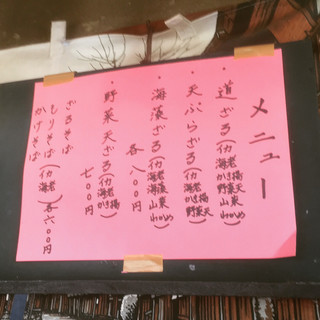 メニュー
・道ざる(イカ 海老 かき揚 野菜天 山東 わかめ)
・天ぷらざる(イカ 海老 かき揚 野菜天)
・海藻ざる(イカ 海老 海藻 山東 わかめ)
各八〇〇円
・野菜天ざる(イカ 海老 かき揚)
七〇〇円
ざるそば
もりそば(イカ 海老)各六〇〇円
かけそば